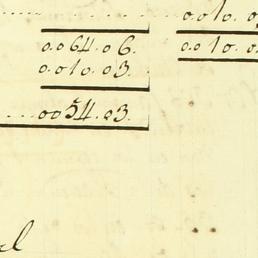 0.010.
0.064.06. 0.010.
0.010.03.
0054.03.